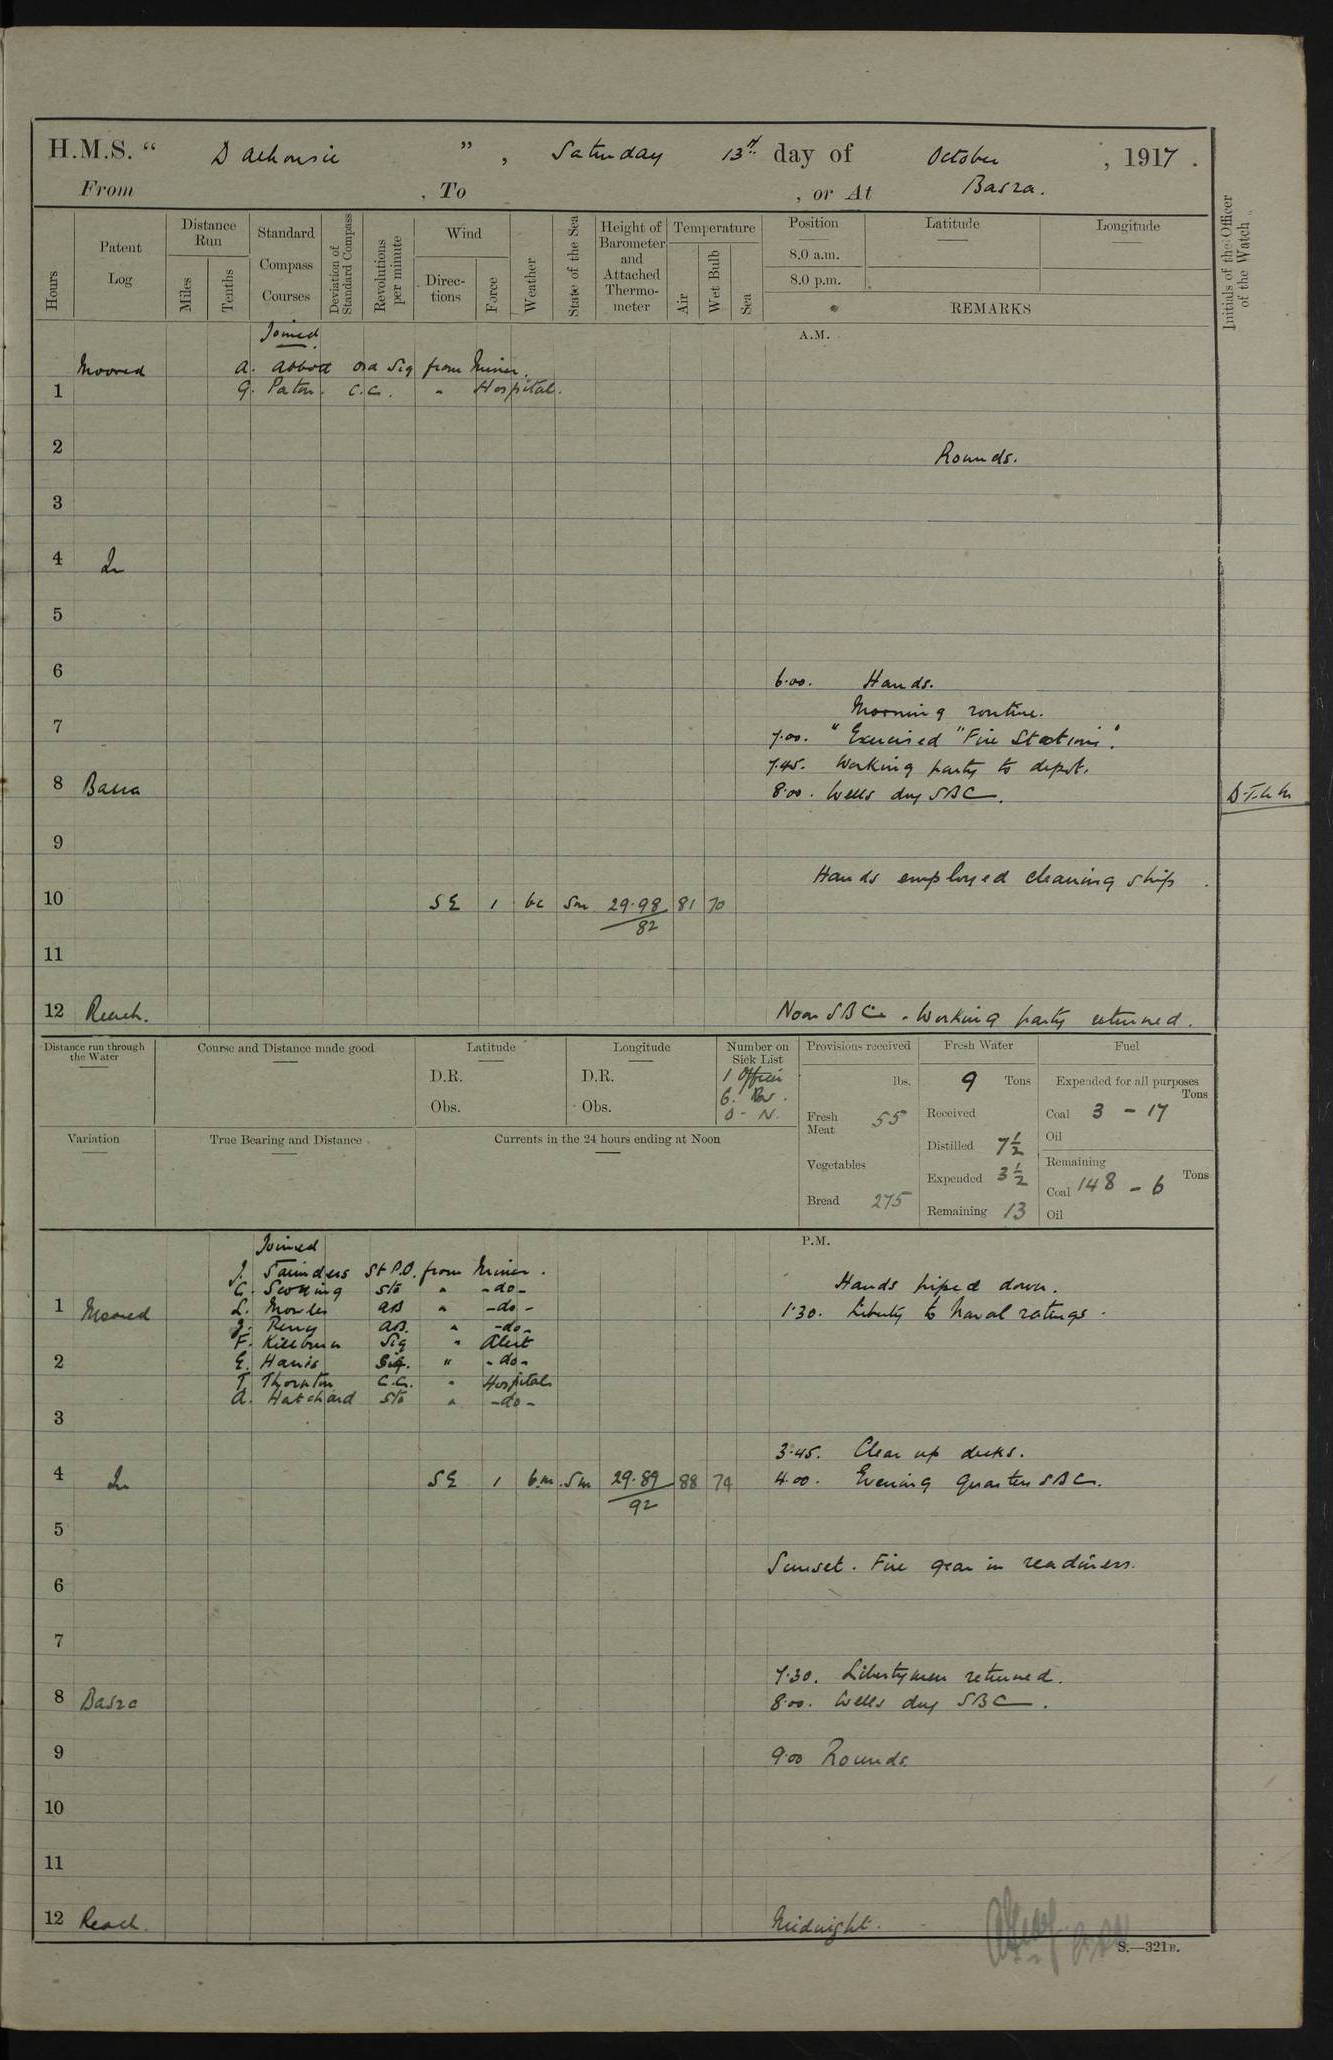 H.M.S. “ Dalhousie ” , Saturday 13th day of October , 1917 .
From , To , or At Basra.
Hours
Patent Log
Distance Run
Miles
Tenths
Standard Compass Courses
Deviation of Standard Compass
Revolutions per minute
Wind
Directions
Force
Weather
State of the Sea
Height of Barometer and Attached Thermometer
Temperature
Air
Wet Bulb
Sea
Position
8.0 a.m.
8.0 p.m.
Latitude
Longitude
REMARKS
Initials of the Officer of the Watch
Joined
A.M.
Moored A. Abbott Ord Sig from Miner.
1 G. Paton. C.C. " Hospital.
2 Rounds.
3
4 In
5
6 6.00. Hands.
Morning routine.
7 7.00. "Exercised "Fire Stations".
7.45. Working party to depot.
8 Basra 8.00. Wells dry SBC.
9
Hands employed cleaning ship
10 SE 1 bc Sm 29.98 81 70
82
11
12 Reach. Noon SBC. Working party returned.
Distance run through the Water
Course and Distance made good
Latitude
D.R.
Obs.
Longitude
D.R.
Obs.
Number on Sick List
1 Officer
6. Br.
0 - N.
Provisions received
lbs.
Fresh Meat 55
Vegetables
Bread 275
Fresh Water
9 Tons
Received
Distilled 7½
Expended 3½
Remaining 13
Fuel
Expended for all purposes
Tons
Coal 3 - 17
Oil
Remaining
Coal 148 - 6 Tons
Oil
Variation
True Bearing and Distance
Currents in the 24 hours ending at Noon
Joined
P.M.
J. Saunders St P.O. from Miner.
C. Sto " -do-
Hands piped down.
1 Moored L. Mowles AB " -do-
1.30. Liberty to Naval ratings.
AB. " -do-
F. Sig " Alert
2 E. Harris Sig. " -do-
T. Thornton C.C. " Hospital
A. Hatchard Sto " -do-
3
3.45. Clear up decks.
4 In SE 1 b.m. Sm 29.89 88 74 4.00. Evening Quarters SBC.
92
5
Sunset. Fire gear in readiness.
6
7
7.30. Libertymen returned.
8 Basra 8.00. Wells dry SBC.
9 9.00 Rounds.
10
11
12 Reach. Midnight.
S.—321B.